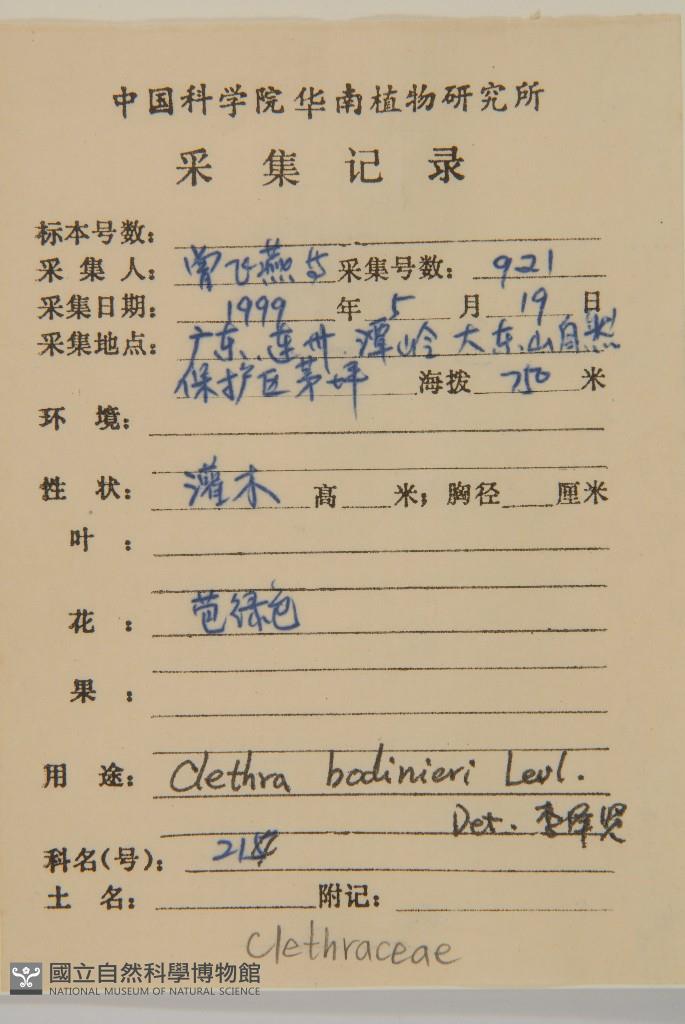 中国科学院华南植物研究所
采集记录
标本号数：
采集人：曾飞燕等 采集号数：921
采集日期：1999年5月19日
采集地点：广东、连州、潭岭大东山自然
保护区茅坪 海拨750米
环境：
性状：灌木 高 米；胸径 厘米
叶：
花：苞绿色
果：
用途：Clethra bodinieri Levl.
Det. 李泽贤
科名(号)：
土名： 附记：
Clethraceae
國立自然科學博物館
NATIONAL MUSEUM OF NATURAL SCIENCE